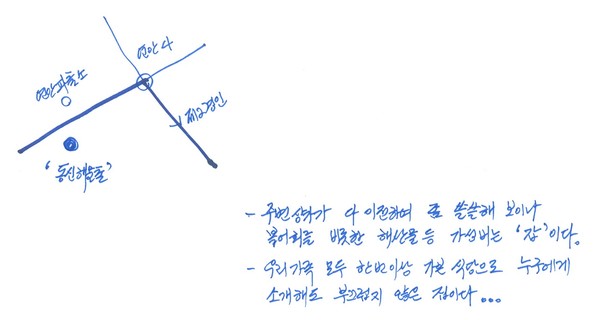 연안 4
연안파출소
제2경인
'동신해물탕'
- 주변상가가 다 이전하여 좀 쓸쓸해 보이나
복어회를 비롯한 해산물등 가성비는 '갑'이다.
- 우리가족 모두 한번이상 가본 식당으로 누구에게
소개해도 부끄럽지 않은 집이다...